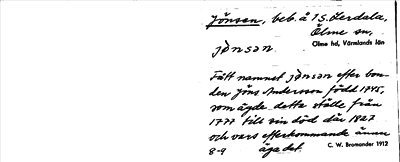 Jönsen, beb. å 1 S. Lerdala,
Ölme sn,
Ölme hd, Värmlands län
jønsan
Fått namnet jønsan efter bon-
den Jöns Andersson född 1745,
som ägde detta ställe från
1777 till sin död där 1827
och vars efterkommande ännu
8-9 äga det.
C. W. Bromander 1912